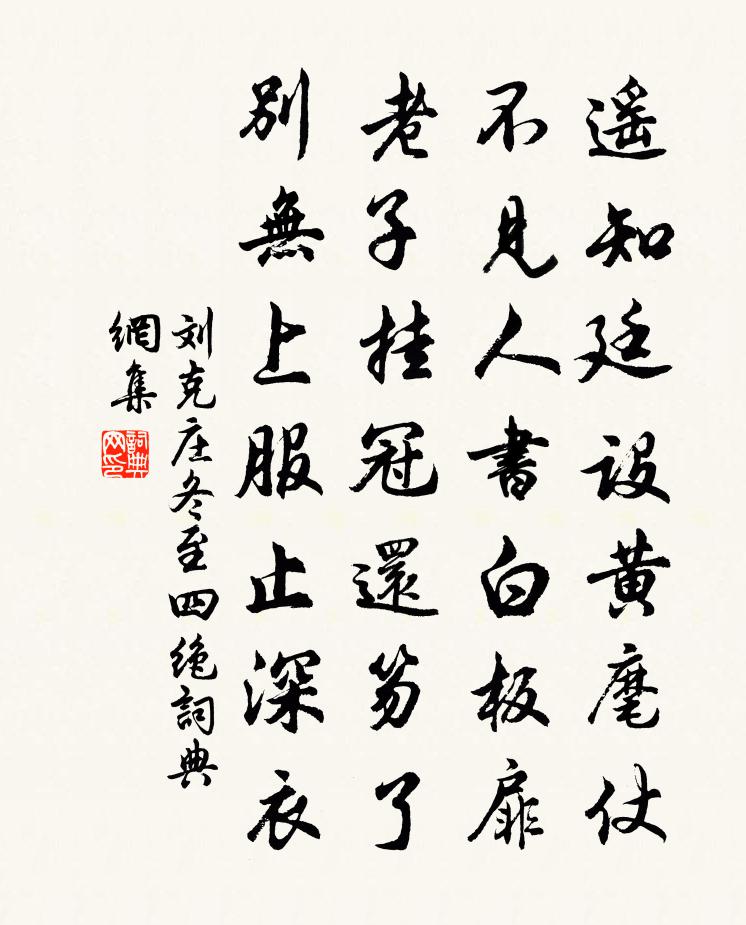 遥知廷設黄麾仗
不見人書白板扉
老子挂冠還笏了
別無上服止深衣
刘克庄冬至四绝詞典
網集
詞典
网印